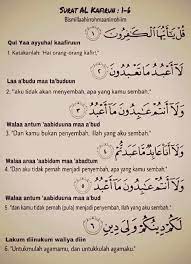 SURAT AL KAFIRUN : 1-6
Bismillaahirrohmaanirrohiim
قُلْ يَٰٓأَيُّهَا ٱلْكَٰفِرُونَ ۝١
Qul Yaa ayyuhal kaafiruun
1. Katakanlah: 'Hai orang-orang kafir',
لَآ أَعْبُدُ مَا تَعْبُدُونَ ۝٢
Laa a'budu maa ta'buduun
2. "aku tidak akan menyembah, apa yang kamu sembah.
وَلَآ أَنتُمْ عَٰبِدُونَ مَآ أَعْبُدُ ۝٣
Walaa antum 'aabiduun maa a'bud
3. "Dan kamu bukan penyembah, Ilah yang aku sembah.
وَلَآ أَنَا۠ عَابِدٌ مَّا عَبَدتُّمْ ۝٤
Walaa anaa 'aabidum maa 'abadtum
4. "dan aku tidak pernah menjadi penyembah, apa yang kamu sembah,
وَلَآ أَنتُمْ عَٰبِدُونَ مَآ أَعْبُدُ ۝٥
Walaa antum 'aabiduuna maa a'bud
5. "dan kamu tidak pernah (pula) menjadi penyembah, Ilah yang aku sembah.
لَكُمْ دِينُكُمْ وَلِىَ دِينِ ۝٦
Lakum diinukum waliya diin
6. "Untukmulah agamamu, dan untukkulah agamaku."